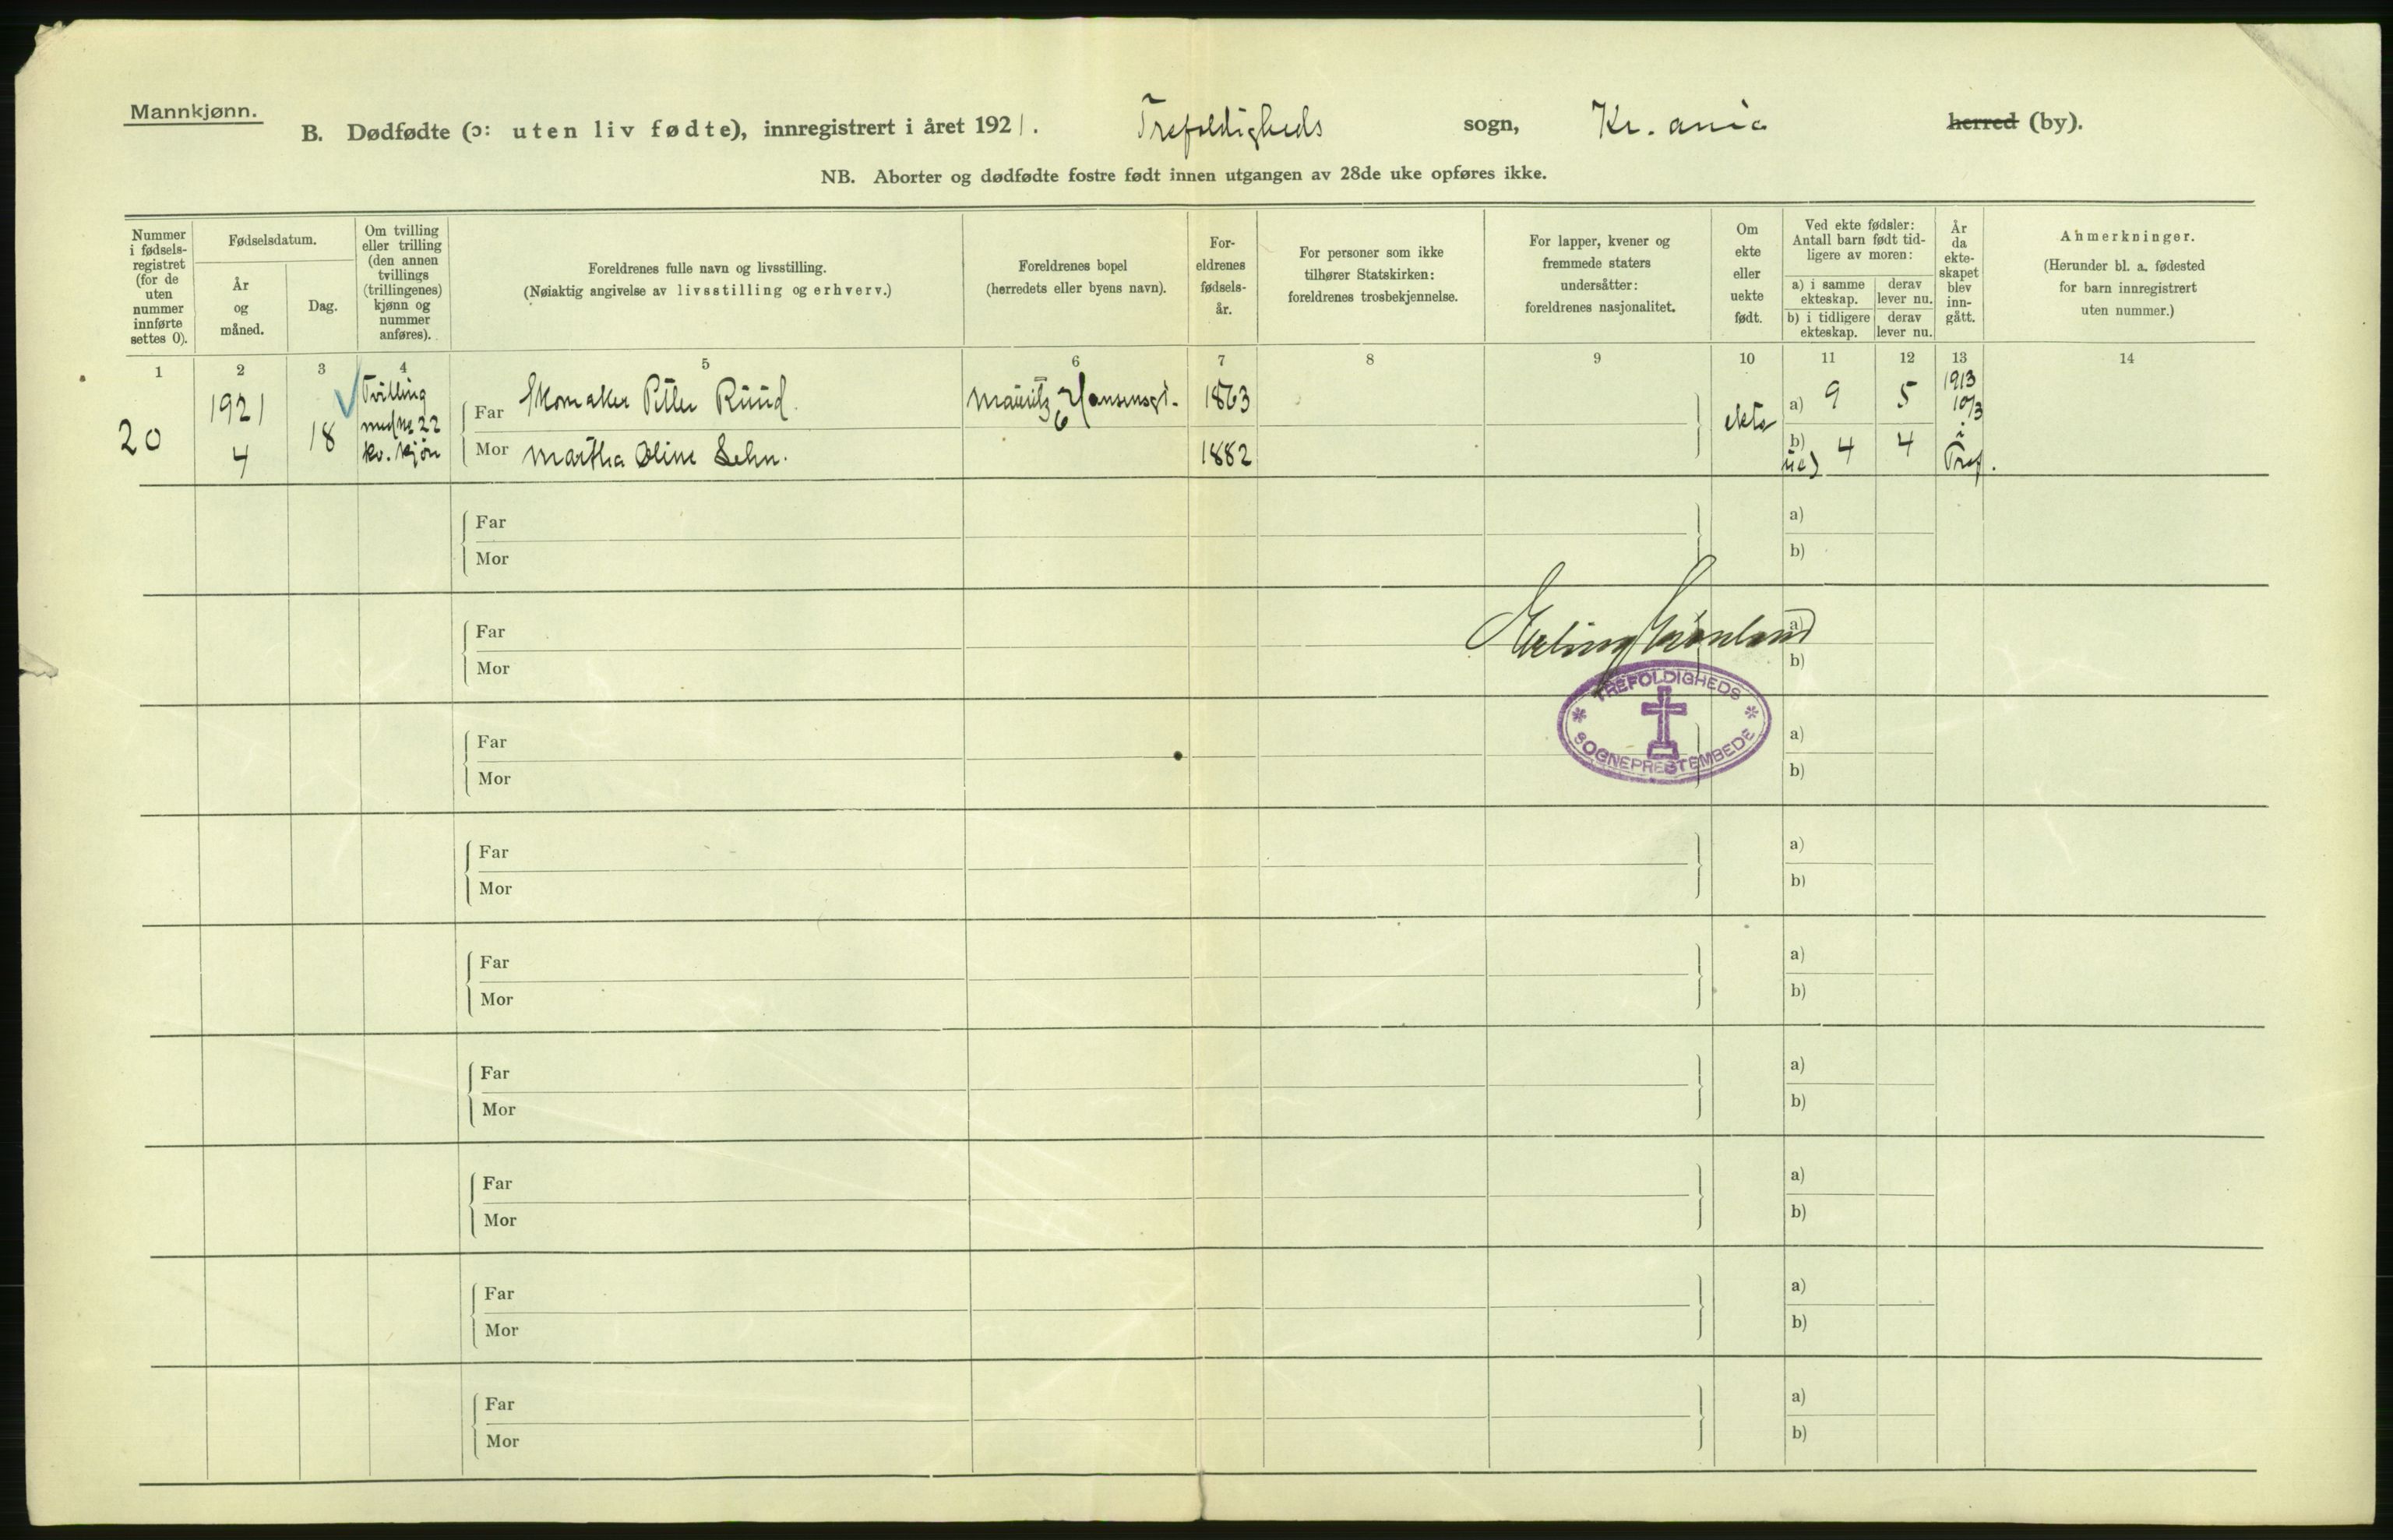 Mannkjønn.
B. Dødfødte (ɔ: uten liv fødte), innregistrert i året 1921. Trefoldigheds sogn, Kr.ania herred (by).
NB. Aborter og dødfødte fostre født innen utgangen av 28de uke opføres ikke.
Nummer i fødselsregistret (for de uten nummer innførte settes 0).
Fødselsdatum.
År og måned.
Dag.
Om tvilling eller trilling (den annen tvillings (trillingenes) kjønn og nummer anføres).
Foreldrenes fulle navn og livsstilling.
(Nøiaktig angivelse av livsstilling og erhverv.)
Foreldrenes bopel
(herredets eller byens navn).
Foreldrenes fødselsår.
For personer som ikke tilhører Statskirken: foreldrenes trosbekjennelse.
For lapper, kvener og fremmede staters undersåtter: foreldrenes nasjonalitet.
Om ekte eller uekte født.
Ved ekte fødsler: Antall barn født tidligere av moren:
a) i samme ekteskap.
derav lever nu.
b) i tidligere ekteskap.
derav lever nu.
År da ekteskapet blev inngått.
Anmerkninger.
(Herunder bl. a. fødested for barn innregistrert uten nummer.)
1 2 3 4 5 6 7 8 9 10 11 12 13 14
20
1921
4
18
Tvilling
med no 22
kv. kjøn
Far Skomaker Petter Ruud.
Mor Martha Oline Lehn.
Mauritz Hansensgt.
6
1863
1882
ekte
a) 9 5
b)
ue) 4 4
1913
10/3
i
Tref.
Far
Mor
a)
b)
Far
Mor
Erling Grønland
a)
b)
TREFOLDIGHEDS
SOGNEPRESTEMBEDE
Far
Mor
a)
b)
Far
Mor
a)
b)
Far
Mor
a)
b)
Far
Mor
a)
b)
Far
Mor
a)
b)
Far
Mor
a)
b)
Far
Mor
a)
b)